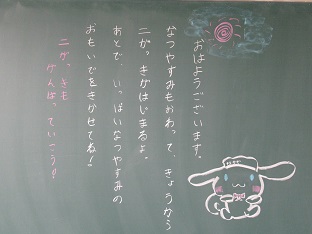 おはようございます。
なつやすみもおわって、きょうから
二がっきがはじまるよ。
あとで、いっぱいなつやすみの
おもいでをきかせてね！
二がっきも
がんばっていこう！